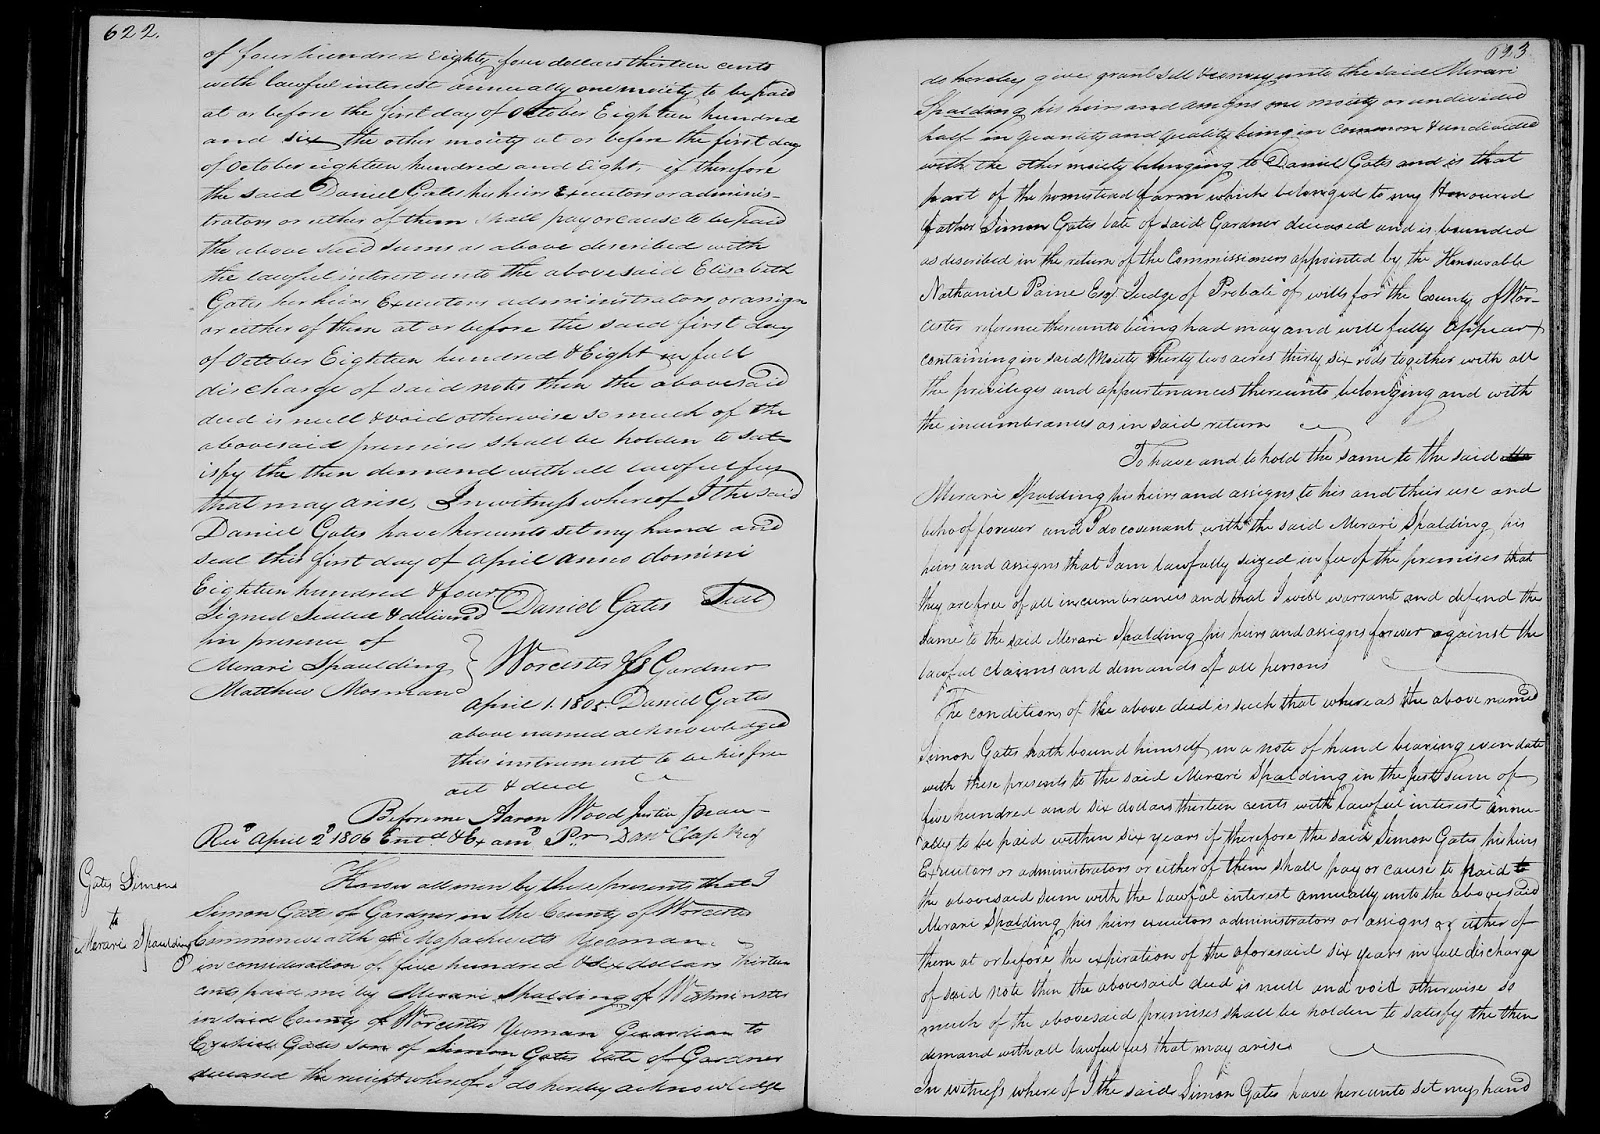 622.
of four hundred Eighty four dollars thirteen cents
with lawful interest annually one moiety to be paid
at or before the first day of October Eighteen hundred
and six the other moiety at or before the first day
of October eighteen hundred and Eight, if therefore
the said Daniel Gates his heirs Executors or adminis-
trators or either of them shall pay or cause to be paid
the above said sums as above described with
the lawful interest unto the abovesaid Elisabeth
Gates her heirs Executors administrators or assigns
or either of them at or before the said first day
of October Eighteen hundred & Eight in full
discharge of said notes then the abovesaid
deed is null & void otherwise so much of the
abovesaid premises shall be holden to sat-
isfy the then demand with all lawful fees
that may arise, In witness whereof I the said
Daniel Gates have hereunto set my hand and
seal this first day of April anno domini
Eighteen hundred & four Daniel Gates Seal
Signed Sealed & delivered
in presence of
Merari Spaulding
Matthew Mosman
Worcester Ss Gardner
April 1. 1805. Daniel Gates
above named acknowledged
this instrument to be his free
act & deed
Before me Aaron Wood Justice Peace
Recd April 2d 1806 Entd & Examd Pr Danl Clap Reg
Gates Simon
to
Merari Spaulding
Know all men by these presents that I
Simon Gates of Gardner in the County of Worcester
Commonwealth of Massachusetts Yeoman.
in consideration of five hundred & six dollars thirteen
cents paid me by Merari Spalding of Westminster
in said County of Worcester Yeoman Guardian to
Ezekiel Gates son of Simon Gates late of Gardner
deceased the receipt whereof I do hereby acknowledge
623
do hereby give grant sell & convey unto the said Merari
Spalding his heirs and assigns one moiety or undivided
half in quantity and quality being in common & undivided
with the other moiety belonging to Daniel Gates and is that
part of the homestead farm which belonged to my Honoured
father Simon Gates late of said Gardner deceased and is bounded
as described in the return of the Commissioners appointed by the Honourable
Nathaniel Paine Esqr Judge of Probate of wills for the County of Wor-
cester reference thereunto being had may and will fully appear
containing in said Moiety Thirty two acres thirty six rods together with all
the privileges and appurtenances thereunto belonging and with
the incumbrances as in said return
To have and to hold the same to the said
Merari Spalding his heirs and assigns, to his and their use and
behoof forever and I do covenant with the said Merari Spalding his
heirs and assigns that I am lawfully seized in fee of the premises that
they are free of all incumbrances and that I will warrant and defend the
same to the said Merari Spaulding his heirs and assigns forever against the
lawful claims and demands of all persons
The condition of the above deed is such that whereas the above named
Simon Gates hath bound himself in a note of hand bearing even date
with these presents to the said Merari Spalding in the Just sum of
five hundred and six dollars thirteen cents with lawful interest annu-
ally to be paid within six years if therefore the said Simon Gates his heirs
Executors or administrators or either of them shall pay or cause to paid
the abovesaid sum with the lawful interest annually unto the abovesaid
Merari Spalding his heirs executors administrators or assigns or either of
them at or before the expiration of the aforesaid six years in full discharge
of said note then the abovesaid deed is null and void otherwise so
much of the abovesaid premises shall be holden to satisfy the then
demand with all lawful fees that may arise
In witness where of I the said Simon Gates have hereunto set my hand